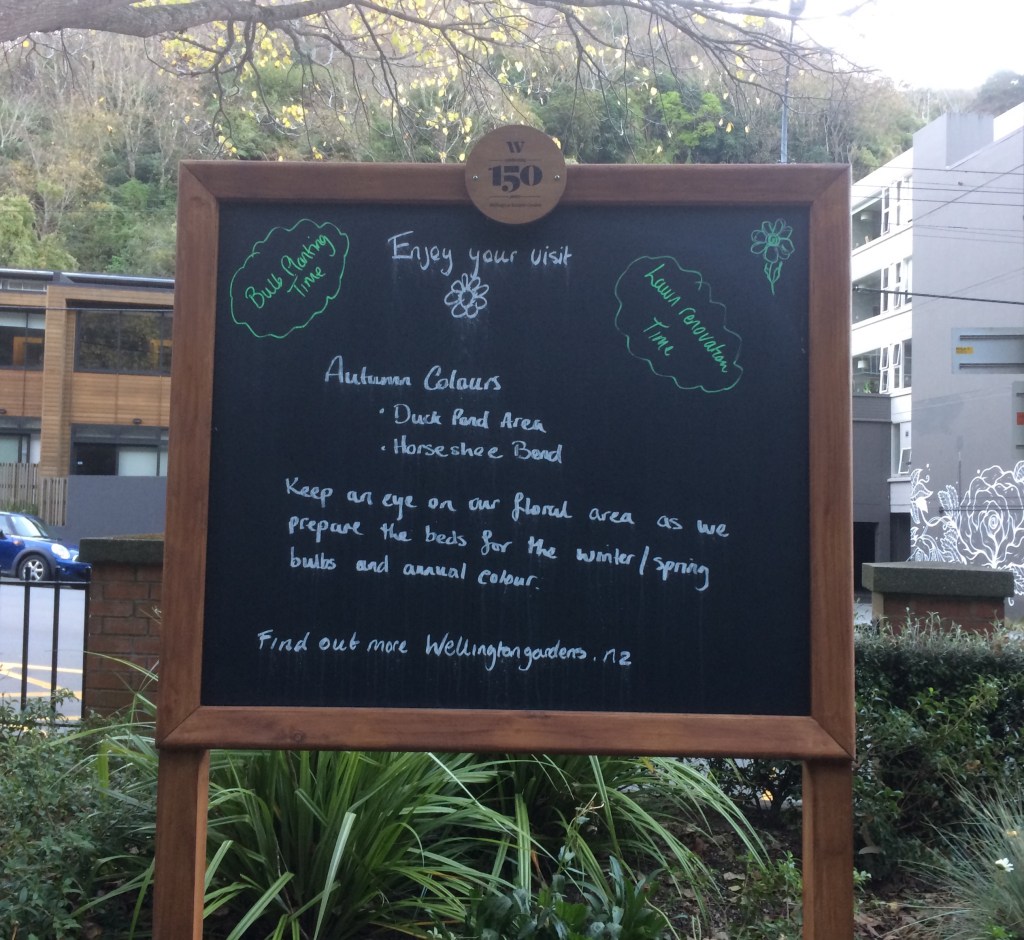 W
150
Bulb Planting
Time
Enjoy your visit
Lawn renovation
Time
Autumn Colours
• Duck Pond Area
• Horseshee Bend
Keep an eye on our floral area as we
prepare the beds for the winter/spring
bulbs and annual colour.
Find out more Wellingtongardens.nz